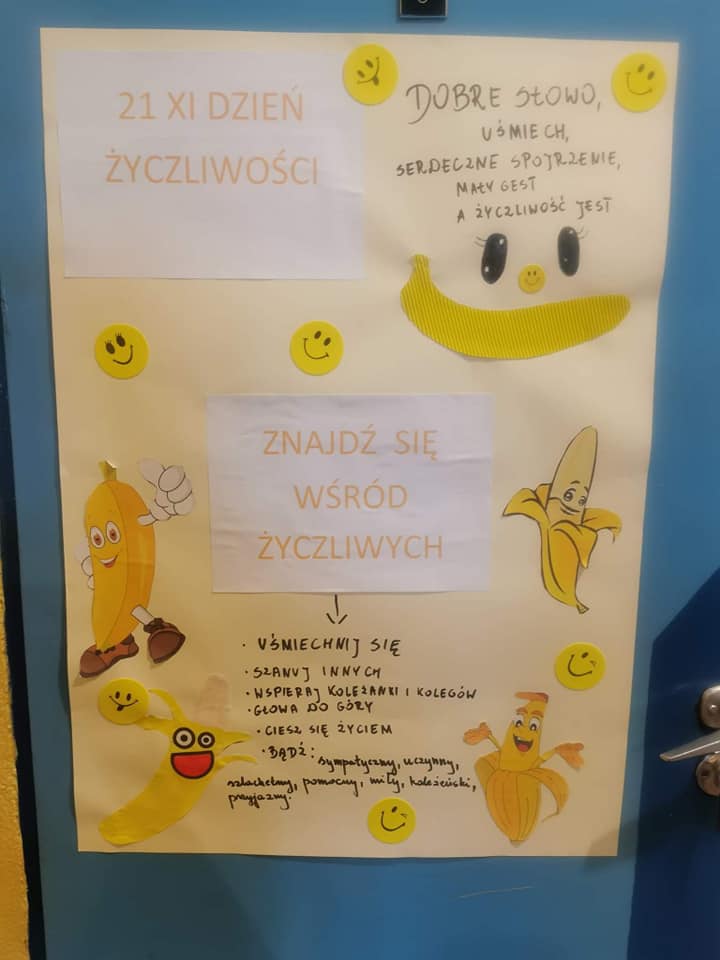 21 XI DZIEŃ
ŻYCZLIWOŚCI
DOBRE SŁOWO,
UŚMIECH,
SERDECZNE SPOJRZENIE,
MAŁY GEST
A ŻYCZLIWOŚĆ JEST
ZNAJDŹ SIĘ
WŚRÓD
ŻYCZLIWYCH
· UŚMIECHNIJ SIĘ
· SZANUJ INNYCH
· WSPIERAJ KOLEŻANKI I KOLEGÓW
· GŁOWA DO GÓRY
· CIESZ SIĘ ŻYCIEM
· BĄDŹ:
sympatyczny, uczynny,
szlachetny, pomocny, miły, koleżeński,
przyjazny.